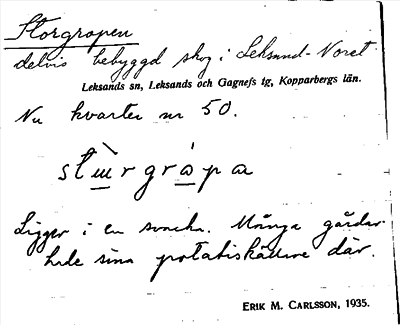 Storgropen
delvis bebyggd skog i Leksand-Noret
Leksands sn, Leksands och Gagnefs tg, Kopparbergs län.
Nu kvarter nr 50.
stɯ̀rgrápa
Ligger i en svacka. Många gårdar
hade sina potatiskällare där.
ERIK M. CARLSSON, 1935.